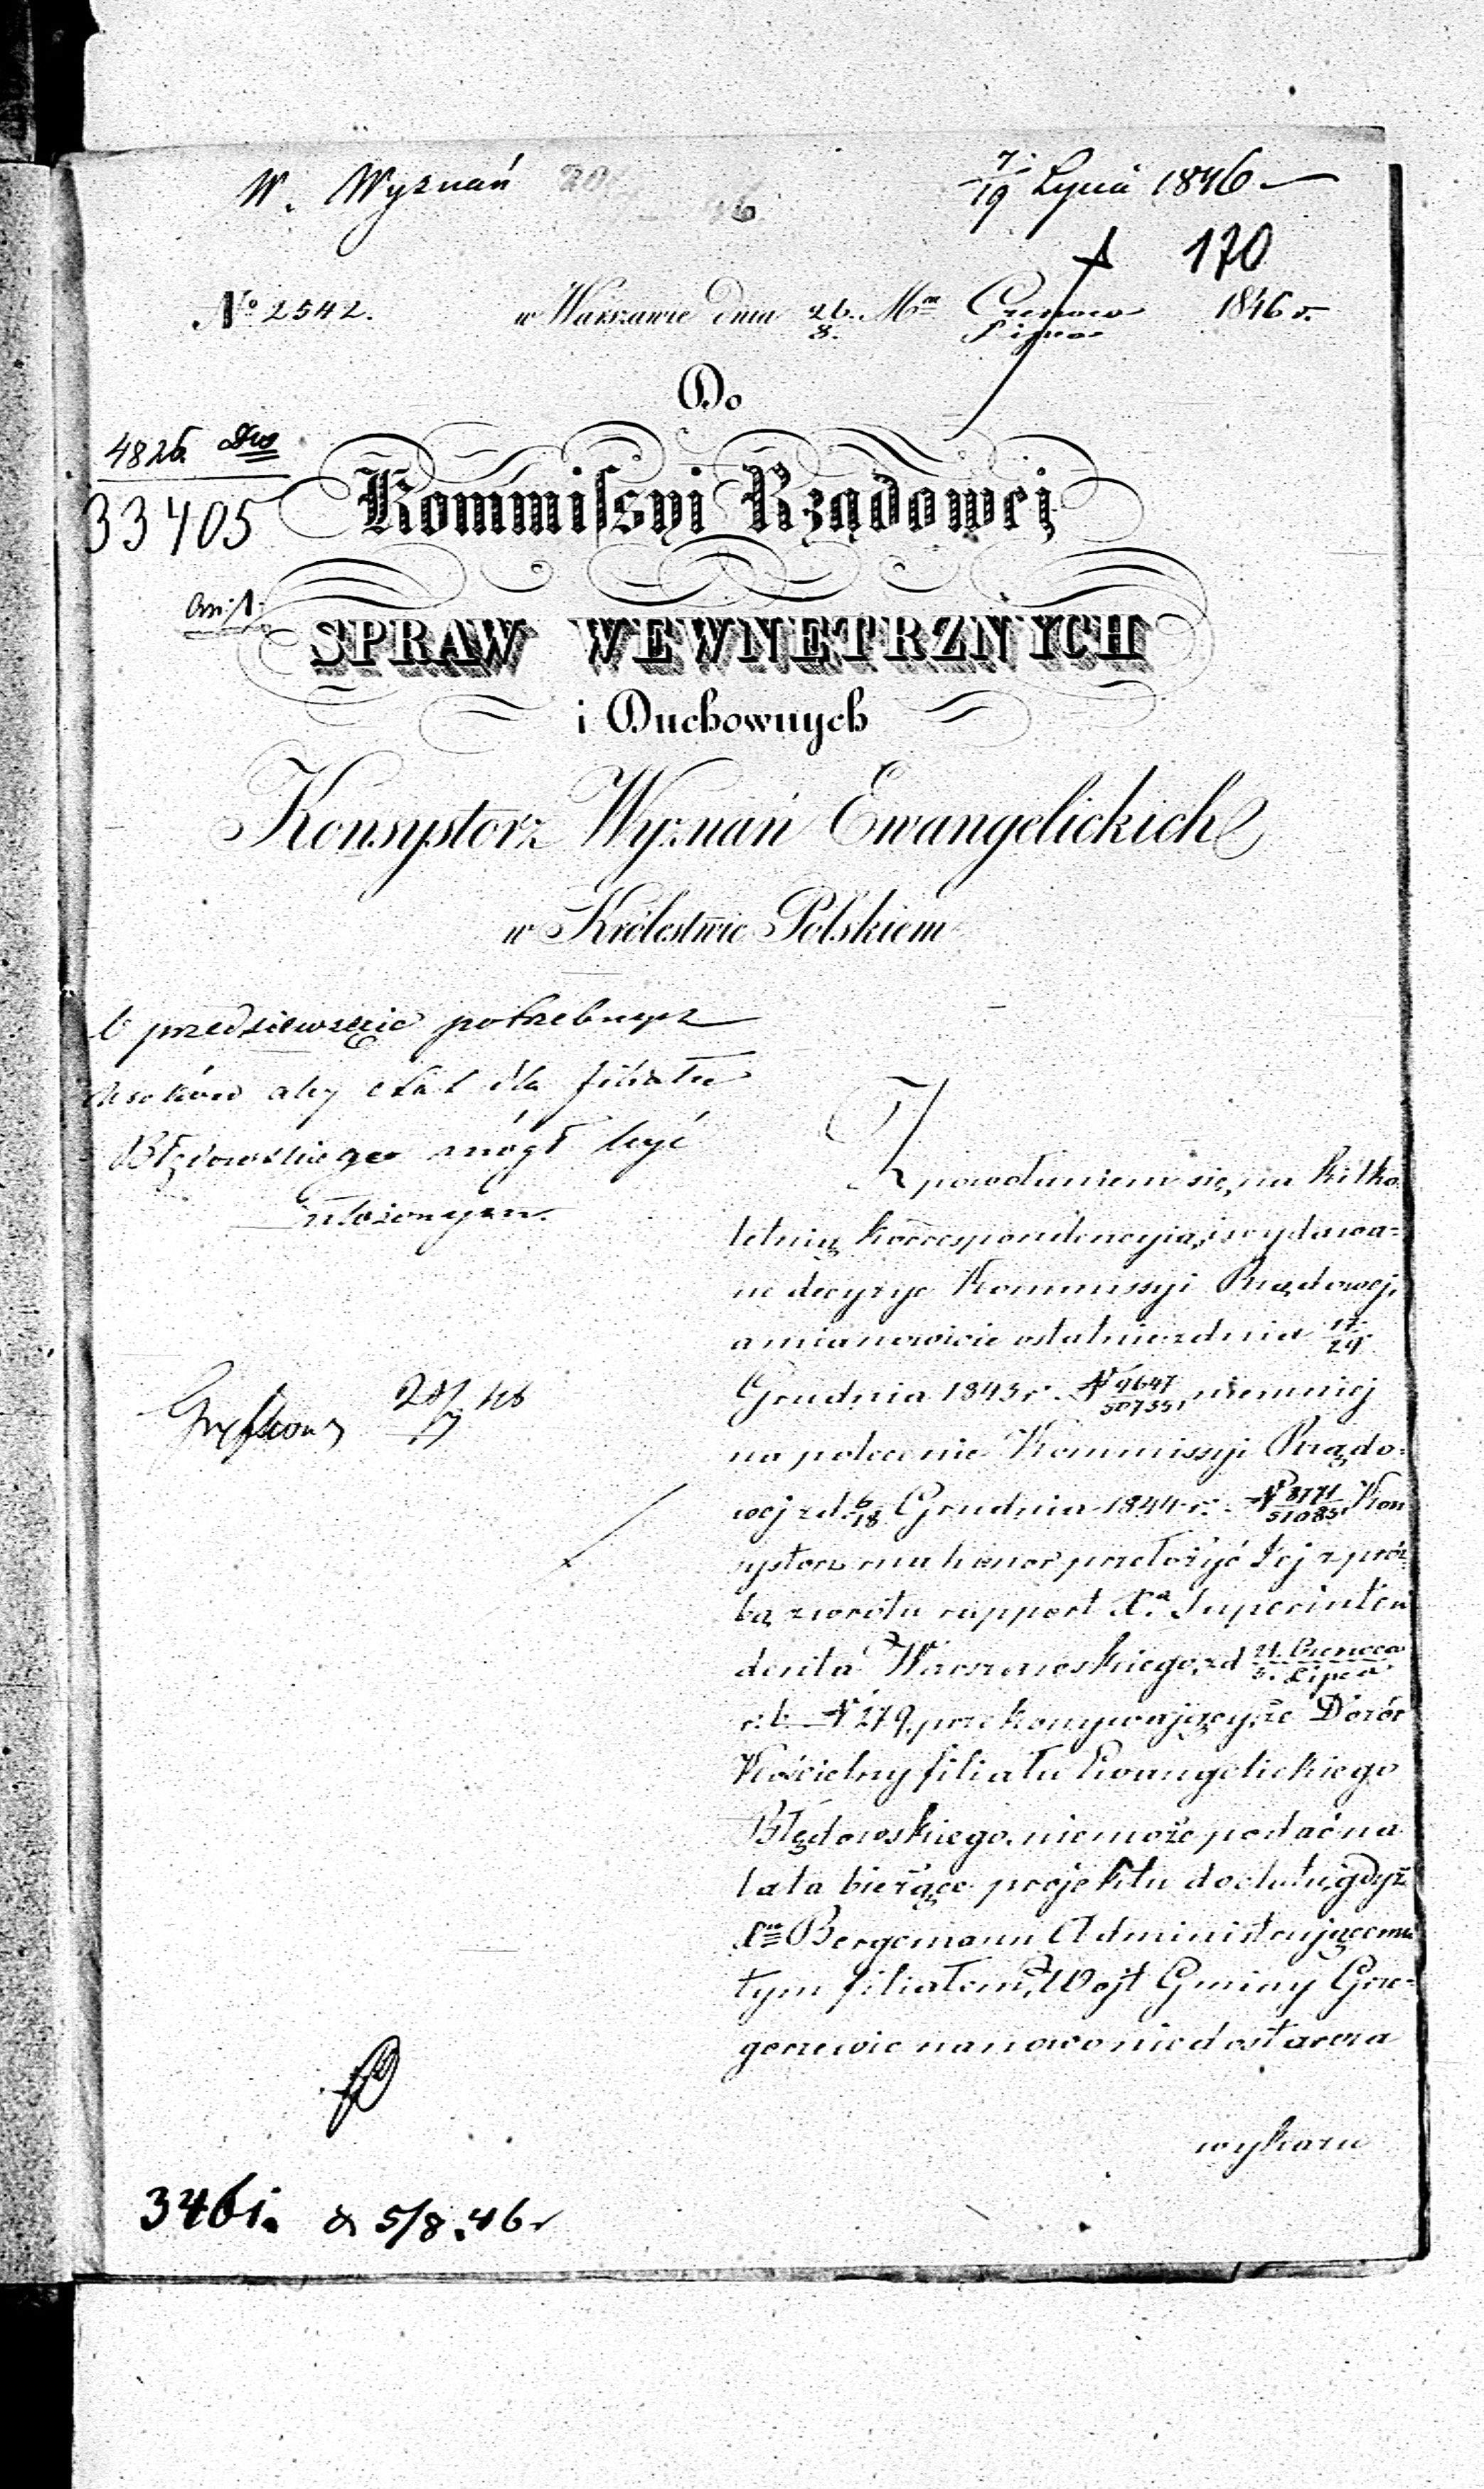 W. Wyznań
7/19 Lipca 1846
170
№ 2542. w Warszawie dnia 26/8. Mca Czerwca/Lipca 1846 r.
Do
4826
33405
Kommissyi Rządowej
SPRAW WEWNĘTRZNYCH
i Duchownych
Konsystorz Wyznań Ewangelickich
w Królestwie Polskiem
O przedsięwzięcie potrzebnych
kroków aby etat dla filiału
Błędowskiego mógł być
ułożonym.
28/7 46
Z powołaniem się na kilko
letnią korrespondencyią, i wydawa=
ne decyzye Kommissyi Rządowej,
a mianowicie ostatnie z dnia 12/24
Grudnia 1843 r. № 9647/50735, niemniej
na polecenie Kommissyi Rządo=
wej z d. 6/18 Grudnia 1844 r. № 8771/51085, Kon
systorz ma honor przełożyć Jej z proź=
bą zwrotu rapport Xa. Superinten
denta Warszawskiego, z d. 21. Czerwca/3. Lipca
r. b. № 279, przekonywający, że Dozór
Kościelny filiału Ewangelickiego
Błędowskiego, niemoże podać na
lata bieżące projektu do etatu, gdyż
Xu Bergemann Administrującemu
tym filiałem, Wójt Gminy Grze=
gorzewic nanowo niedostarcza
wykazu
3461. 5/8.46